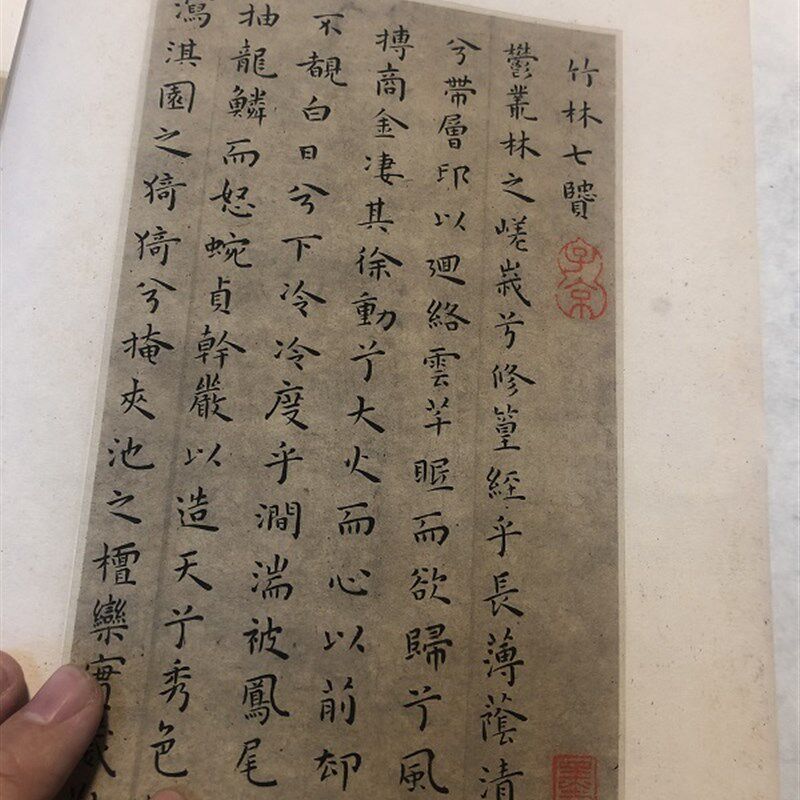 竹林七贒
子京
鬱叢林之嵯峩兮修篁經乎長薄蔭清
兮帶層邱以迴絡雲芊眠而欲歸兮風
搏商金凄其徐動兮大火而心以前却
不覩白日兮下冷冷度乎澗湍被鳳尾
抽龍鱗而怒蜿貞幹嚴以造天兮秀色
瀉淇園之猗猗兮掩夾池之檀欒